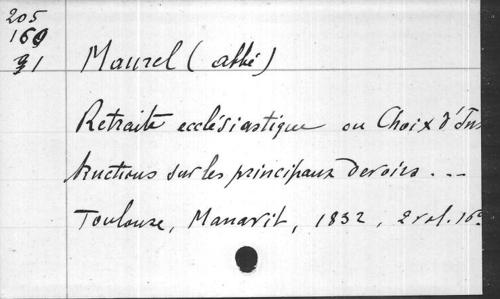 205
160
31
Maurel (abbé)
Retraite ecclésiastique ou Choix d'Ins
tructions sur les principaux devoirs...
Toulouse, Manavit, 1832, 2 vol. 16°